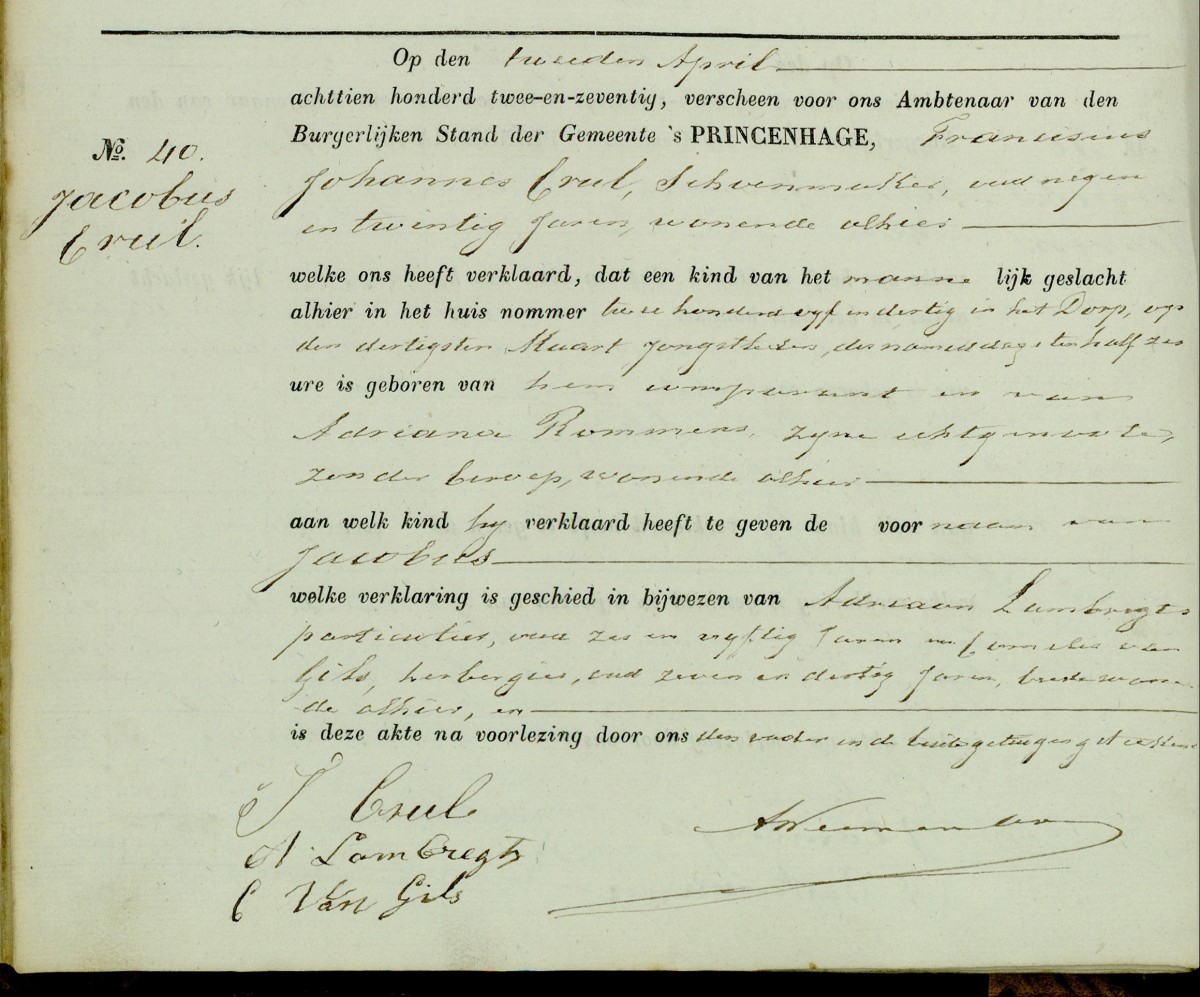 Op den tweeden April
achttien honderd twee-en-zeventig, verscheen voor ons Ambtenaar van den
Burgerlijken Stand der Gemeente 's PRINCENHAGE, Franciscus
No. 40.
Jacobus
Crul.
Johannes Crul, Schoenmaker, oud negen
en twintig Jaren, wonende alhier
welke ons heeft verklaard, dat een kind van het manne lijk geslacht
alhier in het huis nommer twee honderd vyf en dertig in het Dorp, op
den dertigsten Maart jongstleden, des namiddags ten half zes
ure is geboren van hem comparant en van
Adriana Rommens, zyne echtgenoote,
zonder beroep, wonende alhier
aan welk kind hy verklaard heeft te geven de voor naam van
Jacobus
welke verklaring is geschied in bijwezen van Adriaan Lambregts
particulier, oud zes en vyftig Jaren en Cornelis van
Gils, herbergier, oud zeven en dertig Jaren, beide wonen-
de alhier, en
is deze akte na voorlezing door ons den vader en de beide getuigen geteekend
F J Crul
A Lambregts
C Van Gils